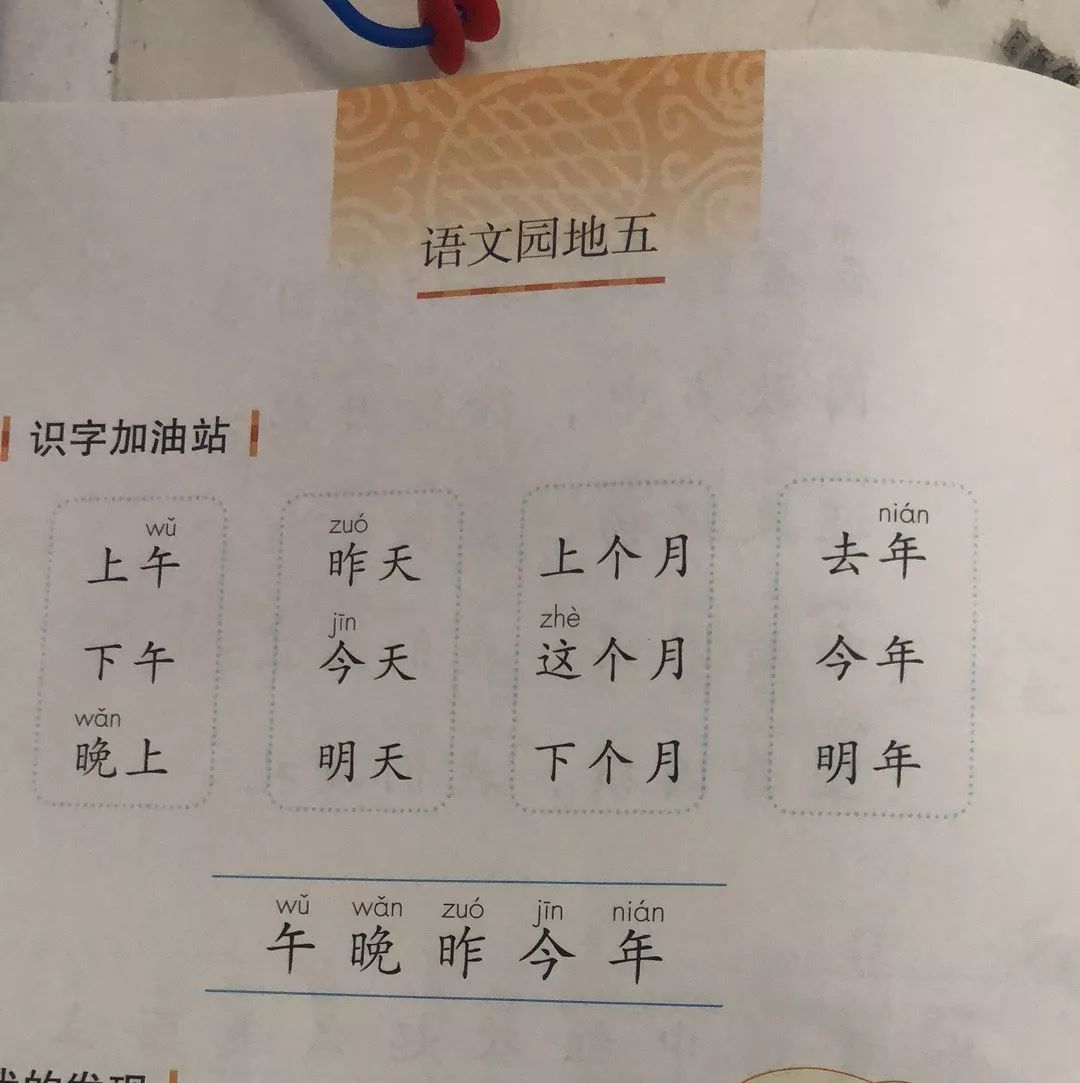 语文园地五
识字加油站
wǔ
上午
下午
wǎn
晚上
zuó
昨天
jīn
今天
明天
上个月
zhè
这个月
下个月
nián
去年
今年
明年
wǔ wǎn zuó jīn nián
午 晚 昨 今 年
我的发现